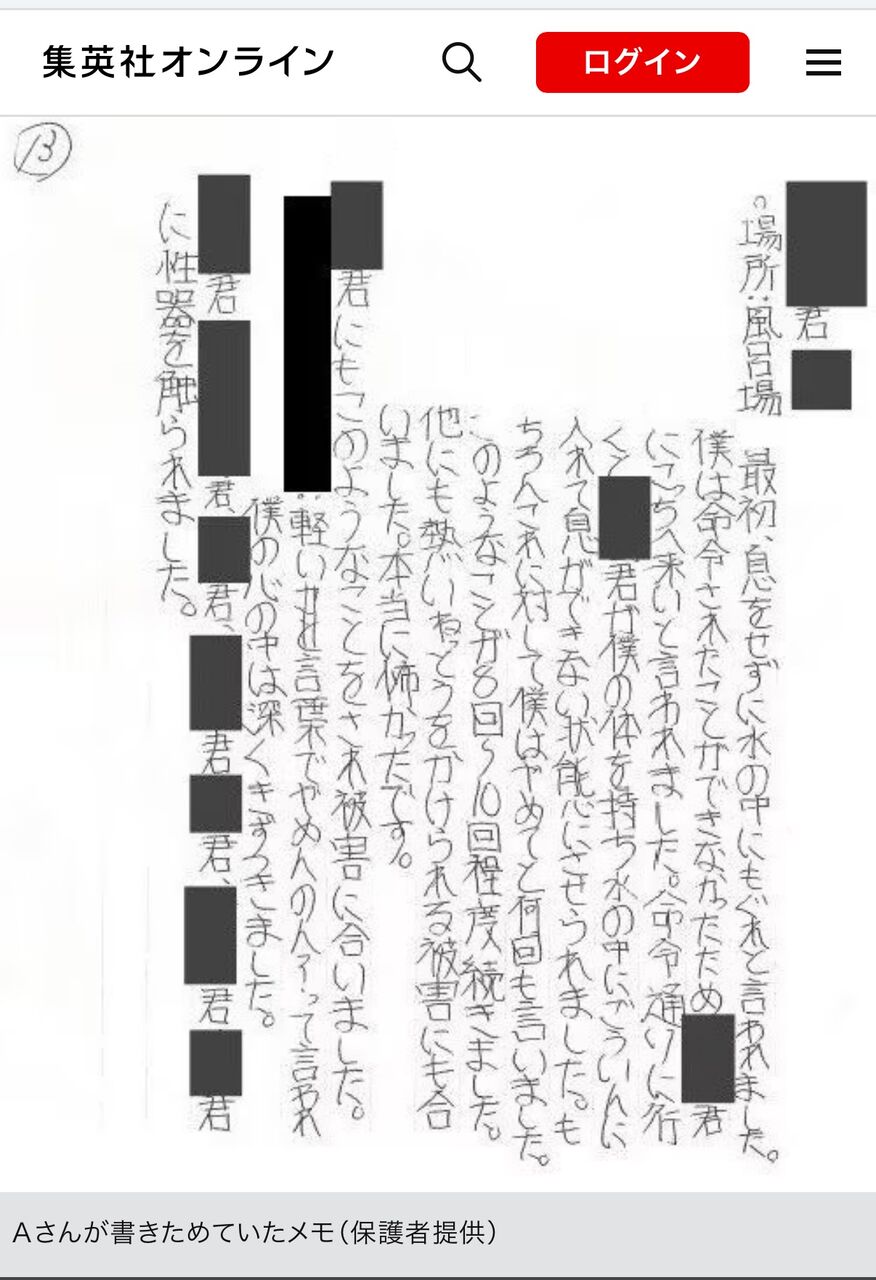 集英社オンライン
ログイン
13
君
。場所:風呂場
最初、息をせずに水の中にもぐれと言われました。
僕は命令されたことができなかったため 君
にこっちへ来いと言われました。命令通りに行
くと 君が僕の体を持ち水の中にごういんに
入れて息ができない状態にさせられました。も
ちろんこれに対して僕はやめてと何回も言いました。
このようなことが8回〜10回程度続きました。
他にも熱いねっとうをかけられる被害にも合
いました。本当に怖かったです。
君にもこのようなことをされ被害に合いました。
:軽い 言葉でやめんのん?って言われ
僕の心の中は深くきずつきました。
君 君、 君、 君 君、 君 君
に性器を触られました。
Aさんが書きためていたメモ(保護者提供)